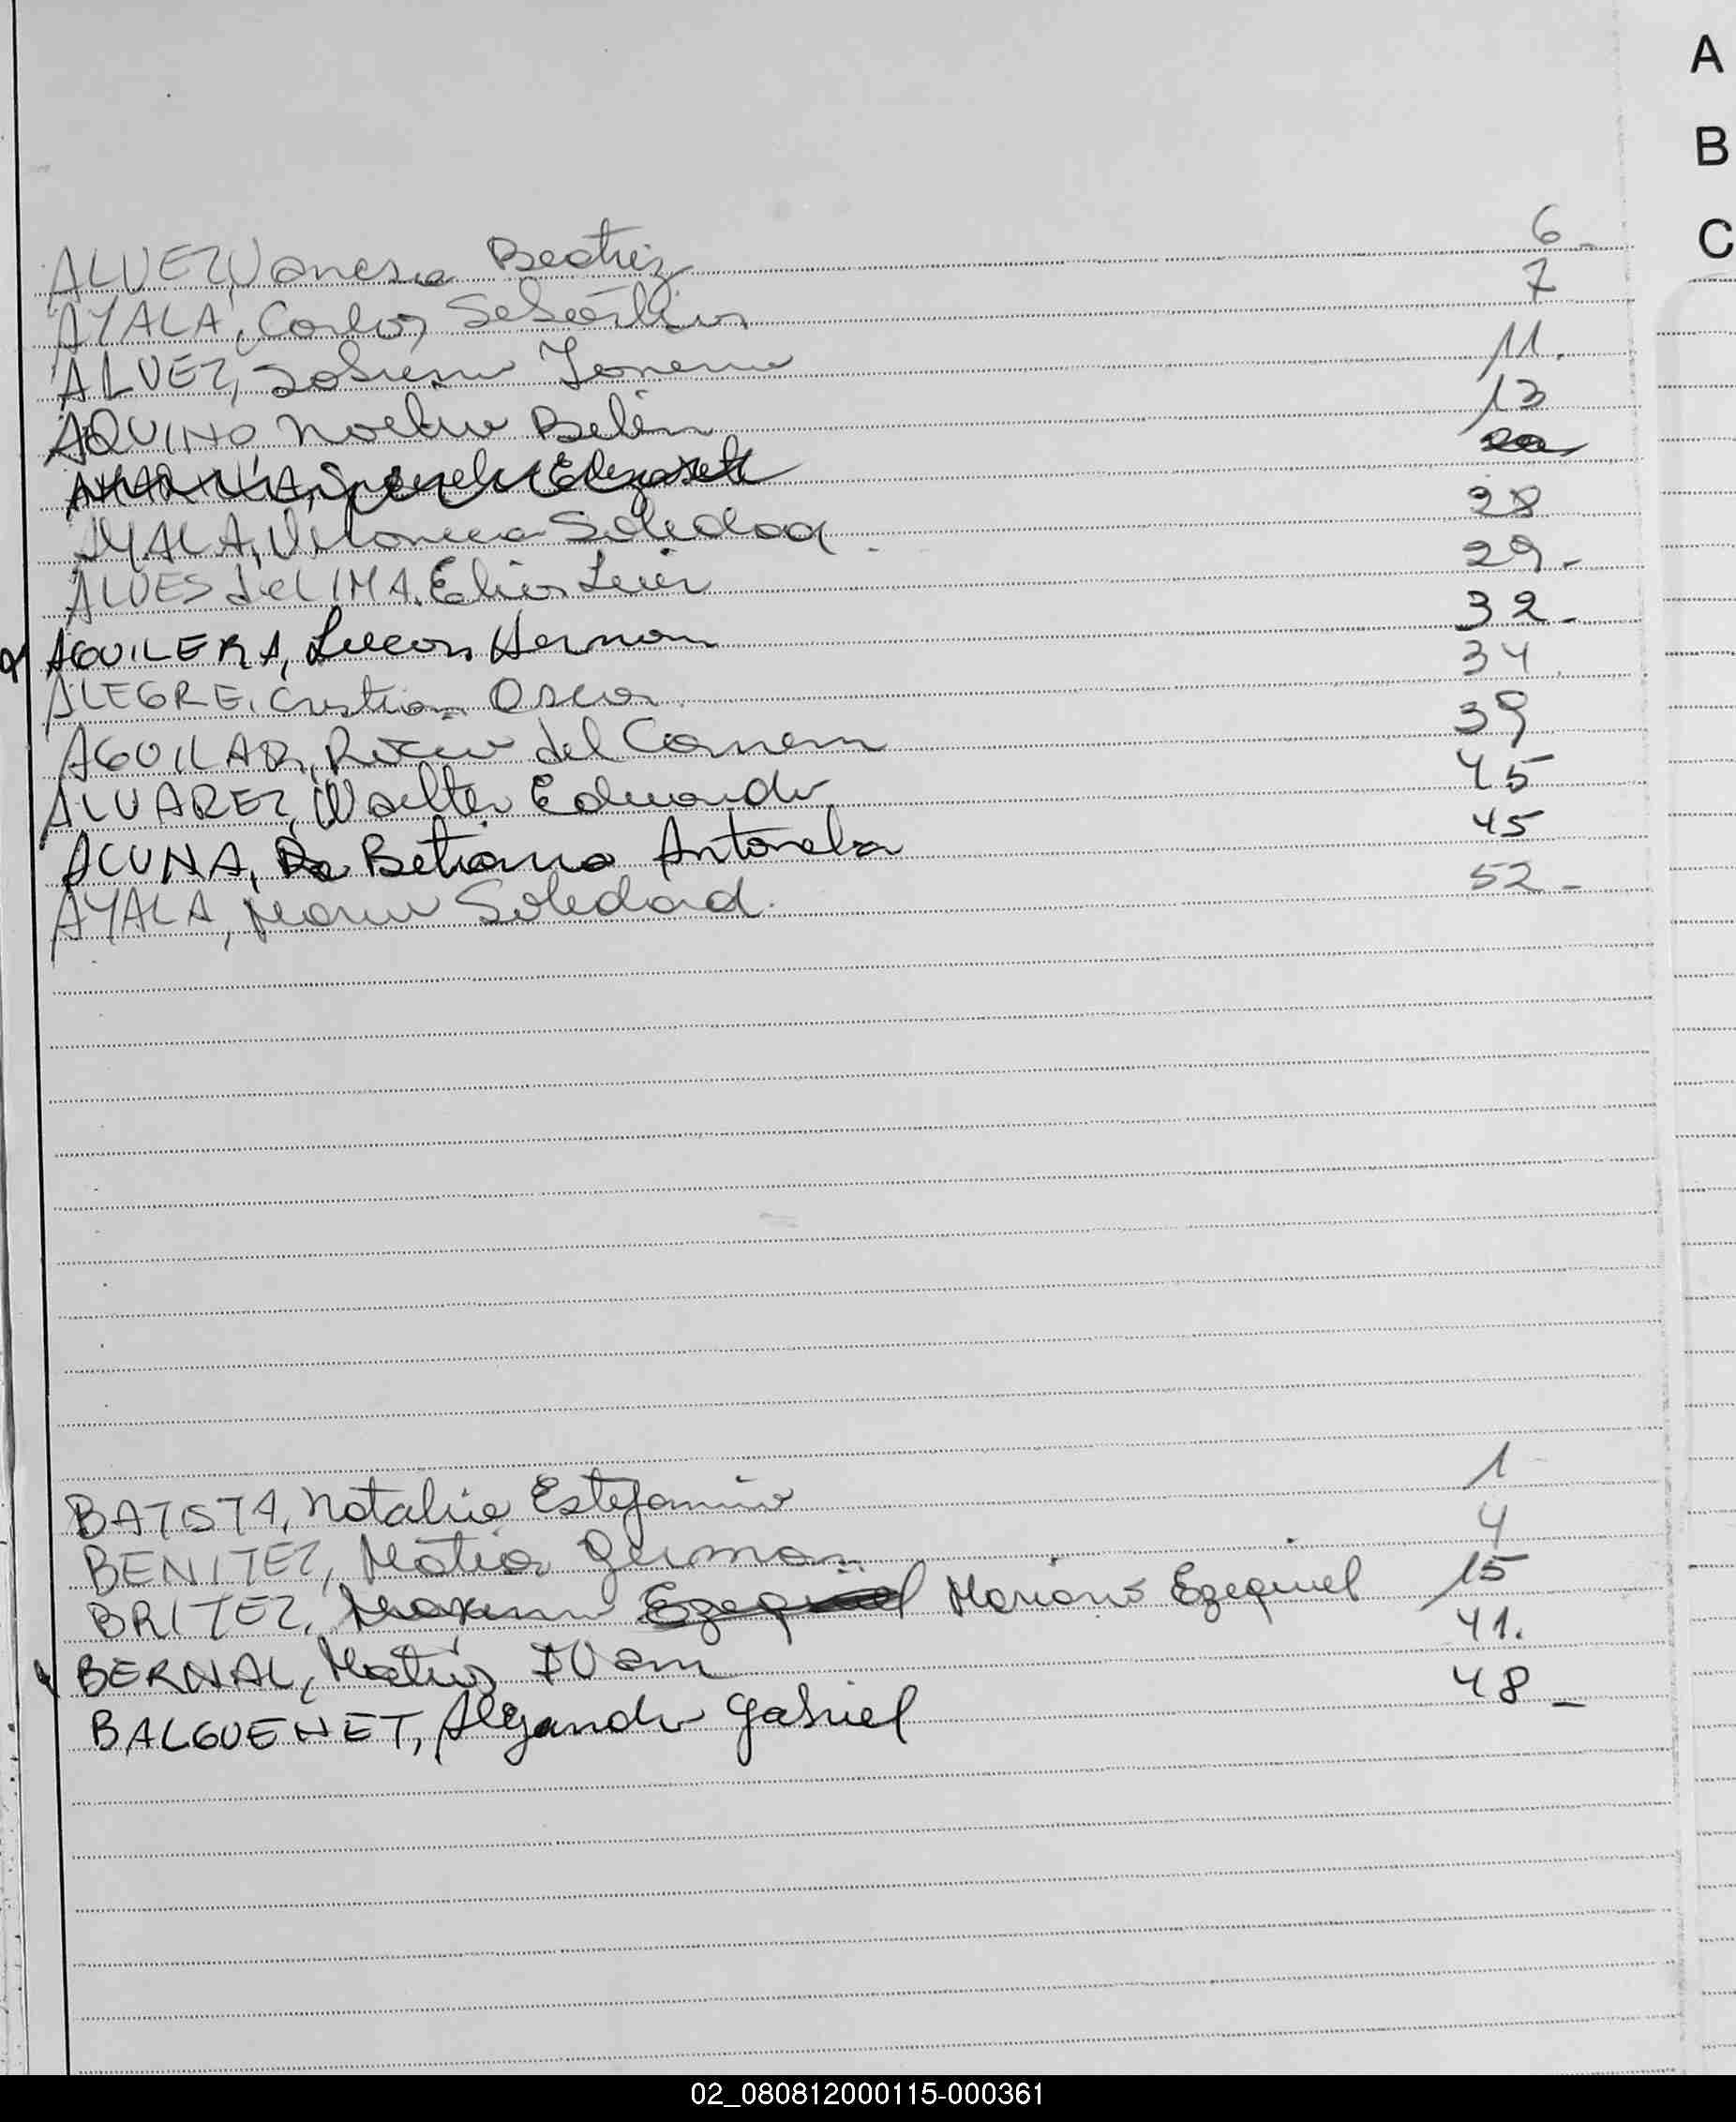 A
B
C
ALVEZ, Vanesa Beatriz 6-
AYALA, Carlos Sebastian 7
ALVEZ, Yohana 11.
AQUINO Noelia Belén 13
AYALA, Veronica Soledad. 28
ALVES de LIMA, Elias Luis 29-
AGUILERA, Lucas Hernan 32-
ALEGRE, Cristian Oscar 34
AGUILAR, Rocio del Carmen 39
ALVAREZ, Walter Eduardo 45
ACUNA, Betiana Antonela 45
AYALA, Maria Soledad. 52-
BATISTA, Natalia Estefania 1
BENITEZ, Matias German 4
BRITEZ, Ezequiel Mariano Ezequiel 15
BERNAL, Matias IVan 41.
BALGUENET, Alejandro Gabriel 48-
02_080812000115-000361